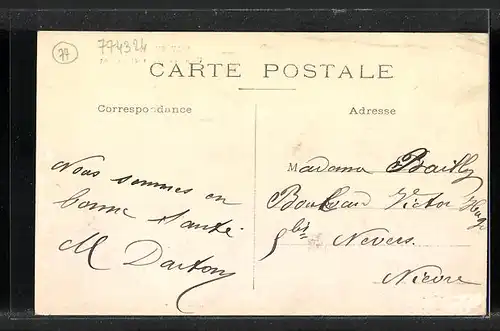 77
774324
CARTE POSTALE
Correspondance
Adresse
Nous sommes en
bonne Santé.
M Dartony
Madame Bailly
Boulevard Victor Hugo
5 bis Nevers.
Nièvre